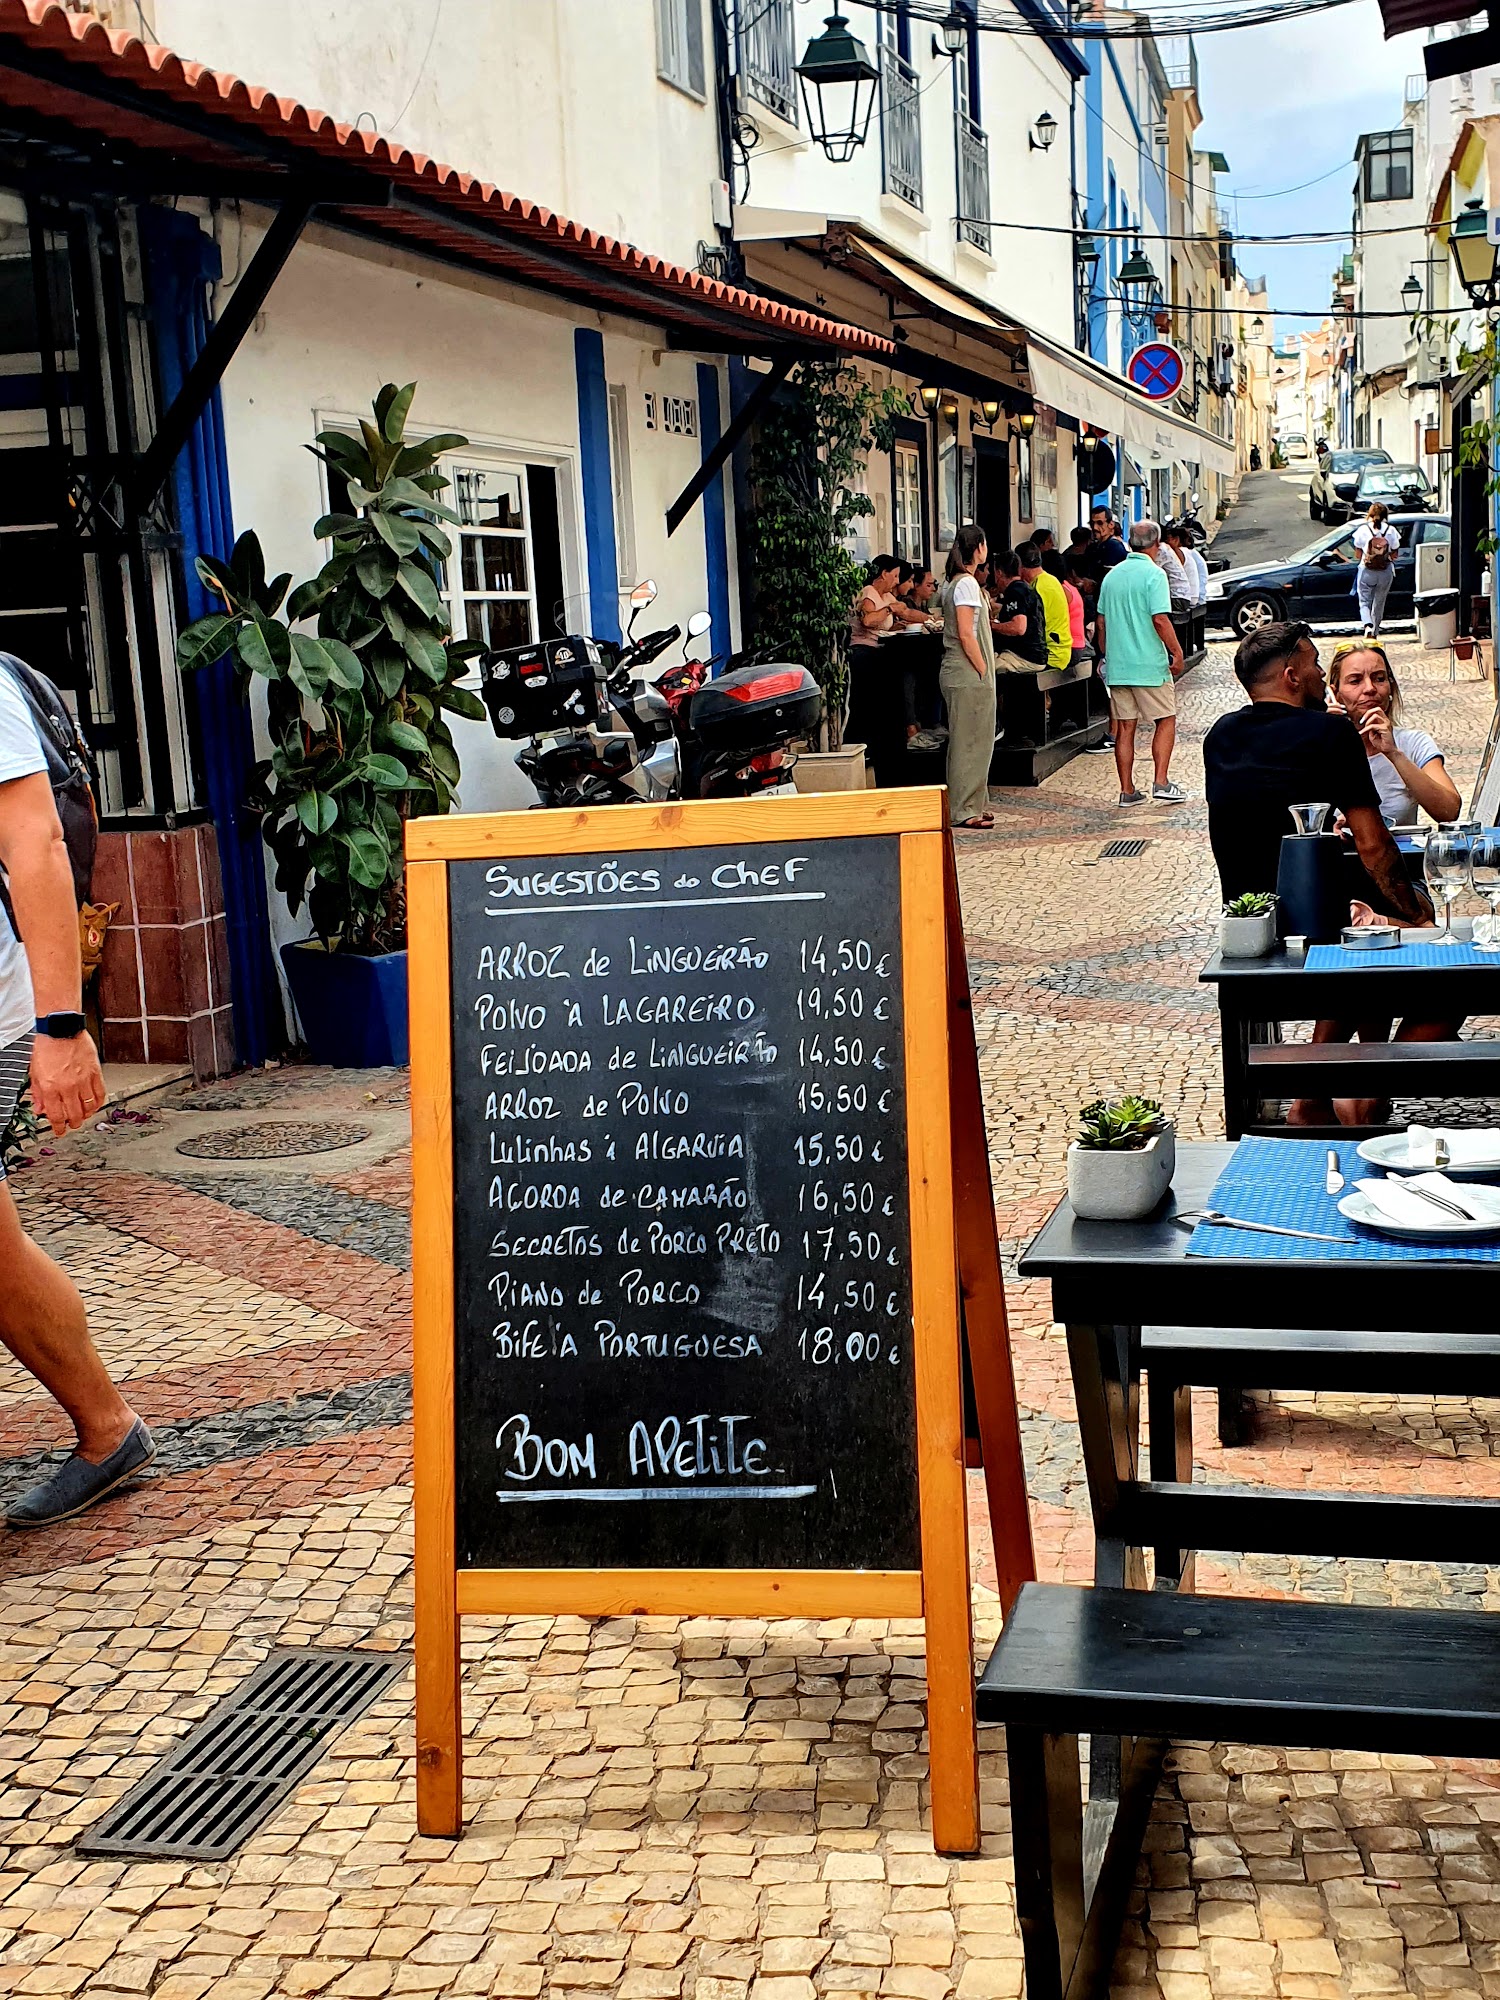 SUGESTÕES do CHEF
ARROZ de LINGUEIRÃO 14,50 €
POLVO À LAGAREIRO 19,50 €
FEIJOADA de LINGUEIRÃO 14,50 €
ARROZ de POLVO 15,50 €
LULINHAS à ALGARVIA 15,50 €
AÇORDA de CAMARÃO 16,50 €
SECRETOS de PORCO PRETO 17,50 €
PIANO de PORCO 14,50 €
BIFE À PORTUGUESA 18,00 €
BOM APETITE